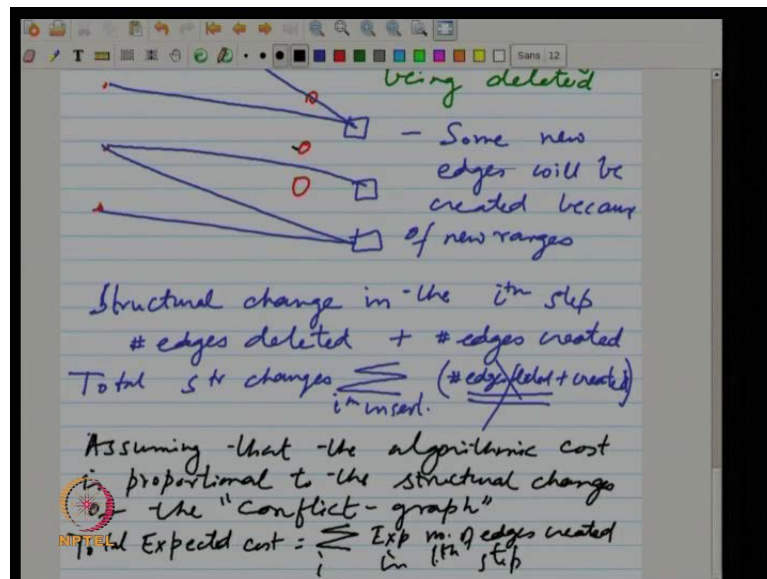 Sans 12
being deleted
- Some new
edges will be
created becaus
of new ranges
Structural change in the ith step
# edges deleted + # edges created
Total str changes Σ (# edges deled + created)
ith insert.
Assuming that the algorithmic cost
is proportional to the structural changes
of the "Conflict-graph"
Total Expected cost = Σ Exp no. of edges created
i in ith step
NPTEL